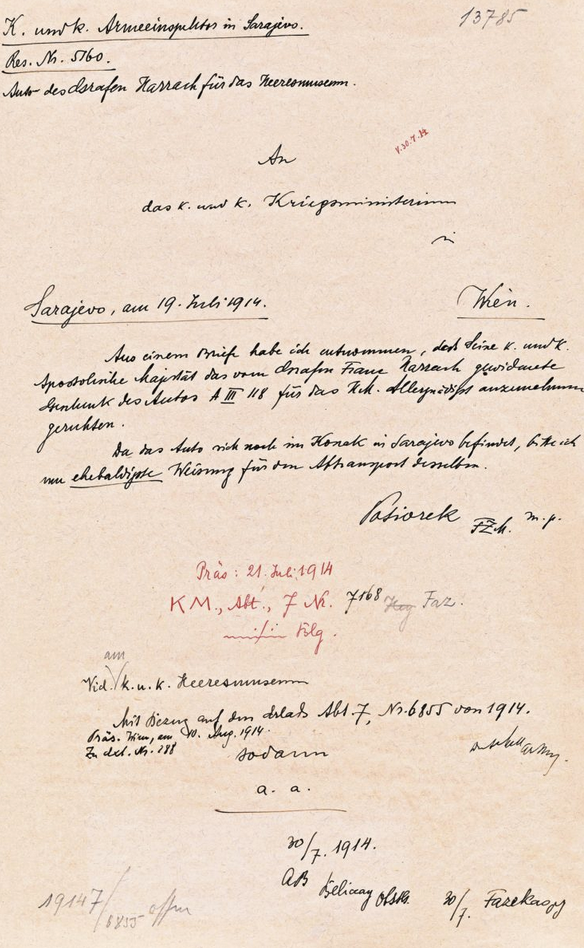 13785
K. und k. Armeeinspektor in Sarajevo.
Res. Nr. 5160.
Auto des Grafen Harrach für das Heeresmuseum.
An
das k. und k. Kriegsministerium
in
Sarajevo, am 19. Juli 1914.
Wien.
Aus einem Briefe habe ich entnommen, daß Seine k. und k.
Apostolische Majestät das vom Grafen Franz Harrach gewidmete
Geschenk des Autos A III 118 für das H.M. Allergnädigst anzunehmen
geruhten.
Da das Auto sich noch im Konak in Sarajevo befindet, bitte ich
um ehebaldigste Weisung für den Abtransport desselben.
Potiorek FZM. m.p.
Präs: 21. Juli 1914
KM., Abt., 7 Nr. 7168 Faz.
mit Blg.
am
Vid. k. u. k. Heeresmuseum
Mit Bezug auf den Erlaß Abt. 7, Nr. 6855 von 1914.
Präs. Wien, am 10. Aug. 1914.
Zu dxt. Nr. 288
sodann
a. a.
30/7. 1914.
AB
30/7. Fazekas
19147/6855 offen